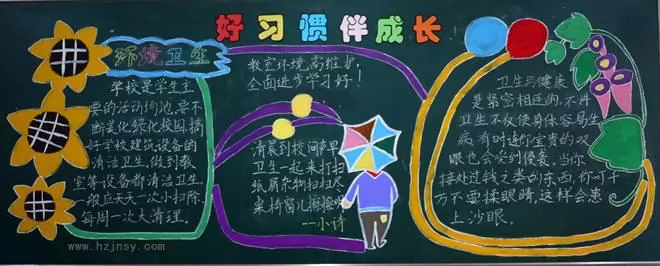 好习惯伴成长
环境卫生
学校是学生主
要的活动场地,要不
断美化绿化校园,搞
好学校建筑设备的
清洁卫生,做到教
室等设备都清洁卫生。
一般应天天一次小扫除,
每周一次大清理。
www.hzjnsy.com
教室环境,高维护,
全面进步学习好!
清晨到校问声早
卫生一起来打扫
纸屑杂物扫扫尽
桌椅窗儿擦擦明
--小诗
卫生与健康
是紧密相连的,不讲
卫生不仅使身体容易生
病,有时连你宝贵的双
眼也会受到侵袭。当你
接触过钱之类的东西,你可千
万不要揉眼睛,这样会患
上沙眼。